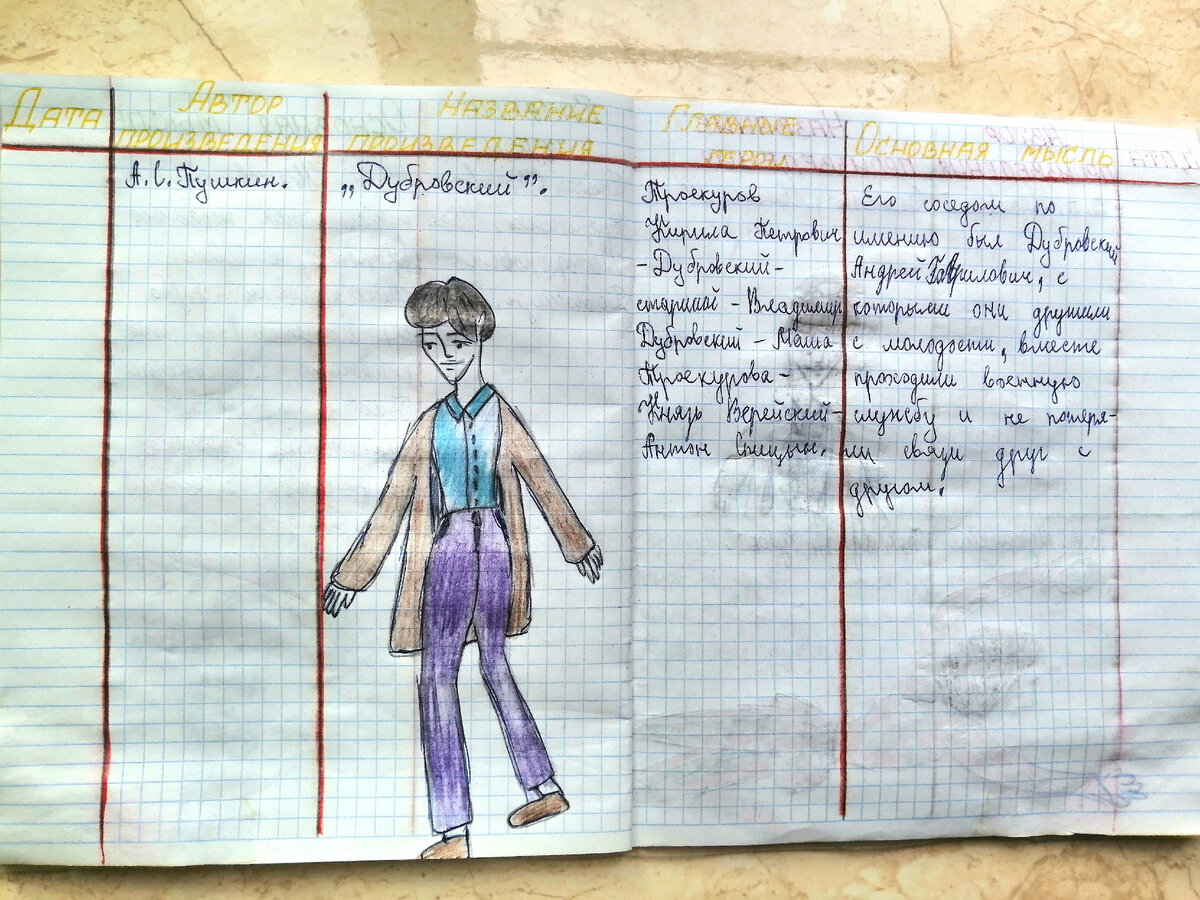 Дата
Автор
произведения
Название
произведения
Главные
герои
Основная мысль
А.С. Пушкин.
„Дубровский”.
Троекуров
Кирила Петрович
- Дубровский -
старший - Владимир
Дубровский - Маша
Троекурова -
Князь Верейский -
Антон Спицын.
Его соседом по
имению был Дубровский
Андрей Гаврилович, с
которыми они дружили
с молодости, вместе
проходили военную
службу и не потеря-
ли связи друг с
другом.